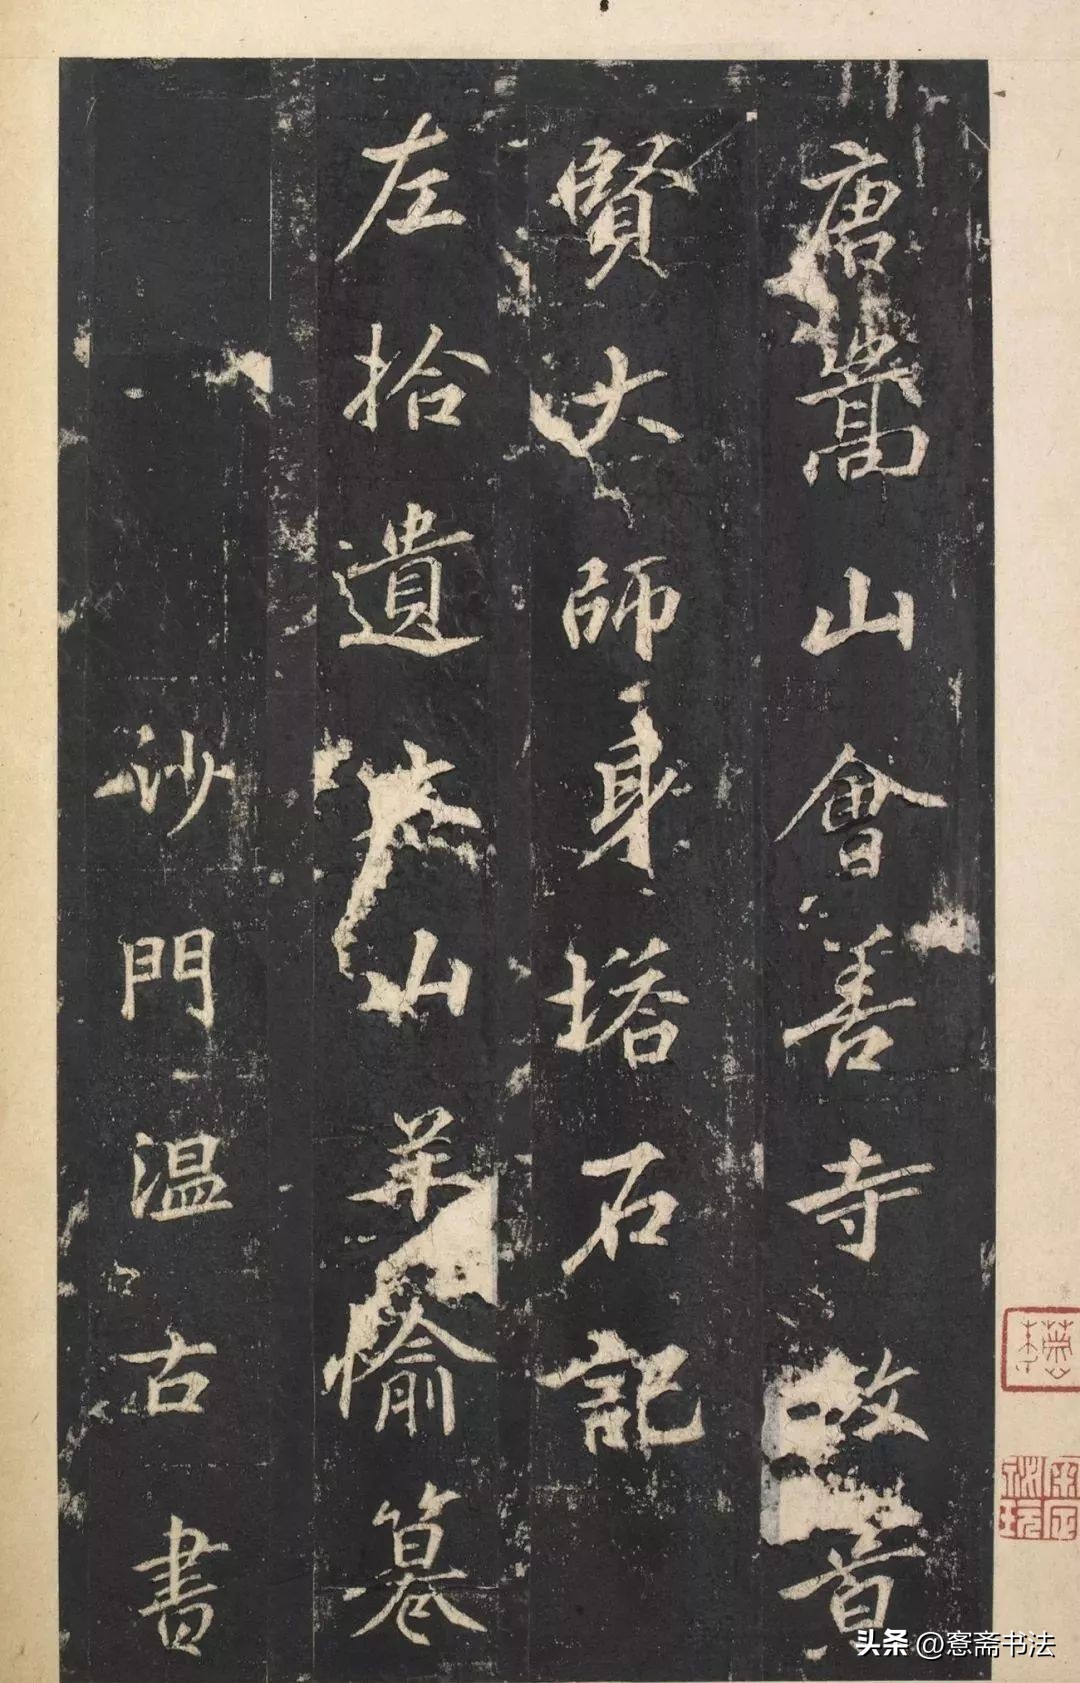 唐嵩山會善寺故首
賢大師身塔石記
左拾遺山羊愉篡
沙門温古書
头条 @愙斋书法